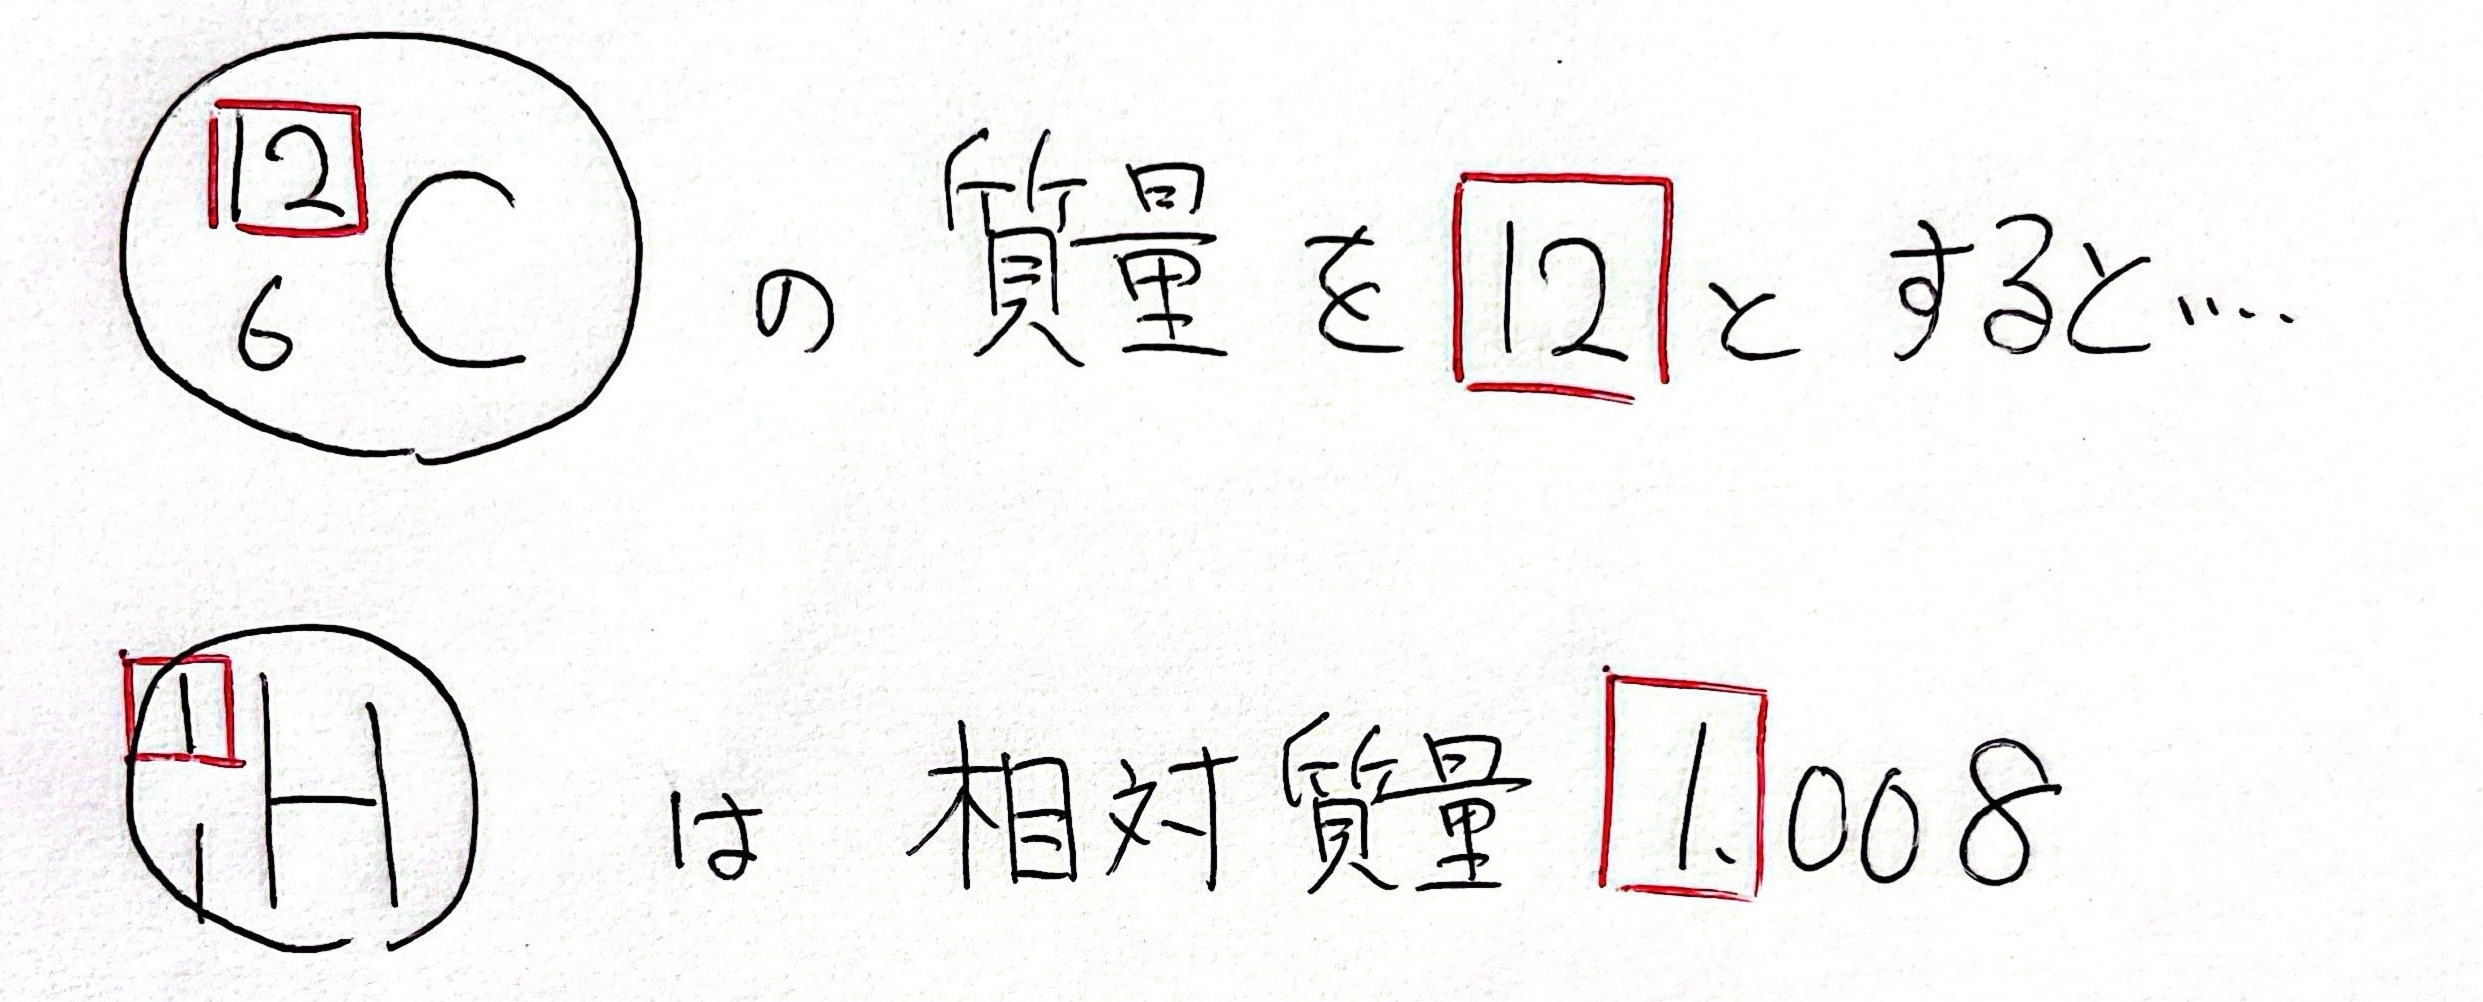 ¹²₆C の 質量 を 12 と すると‥‥
¹₁H は 相対質量 1.008